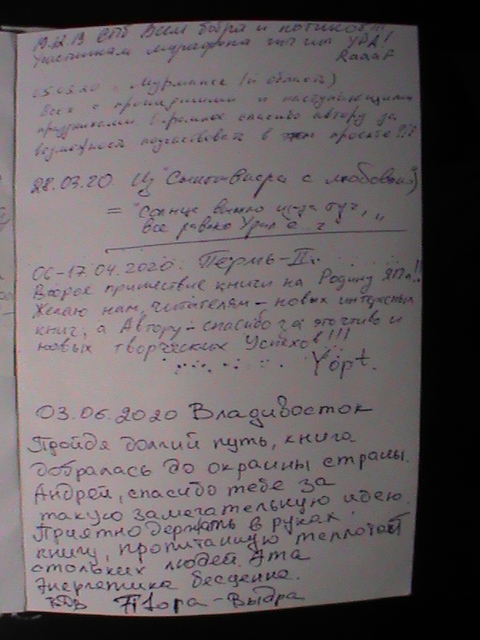 19.12.19 СПб Всем добра и позитива!!!
Участникам марафона читчи УРА!
RaaaF
05.05.20 г. Мурманск (и область)
Всех с прошедшими и наступающими
праздниками. Огромное спасибо автору за
возможность поучаствовать в этом проекте!!!
28.03.20 Из Сыктывкара с любовью)
= "Солнце вышло из-за туч,
все равно Урал
06-17.04.2020. Пермь-II.
Второе пришествие книги на Родину ЯПи!!
Желаю нам, читателям - новых интересных
книг, а Автору - спасибо за это чтиво и
новых творческих успехов!!!
Yopt.
03.06.2020 Владивосток
Пройдя долгий путь, книга
добралась до окраины страны.
Андрей, спасибо тебе за
такую замечательную идею.
Приятно держать в руках
книгу, пропитанную теплотой
стольких людей. Эта
энергетика бесценна.
Выдра